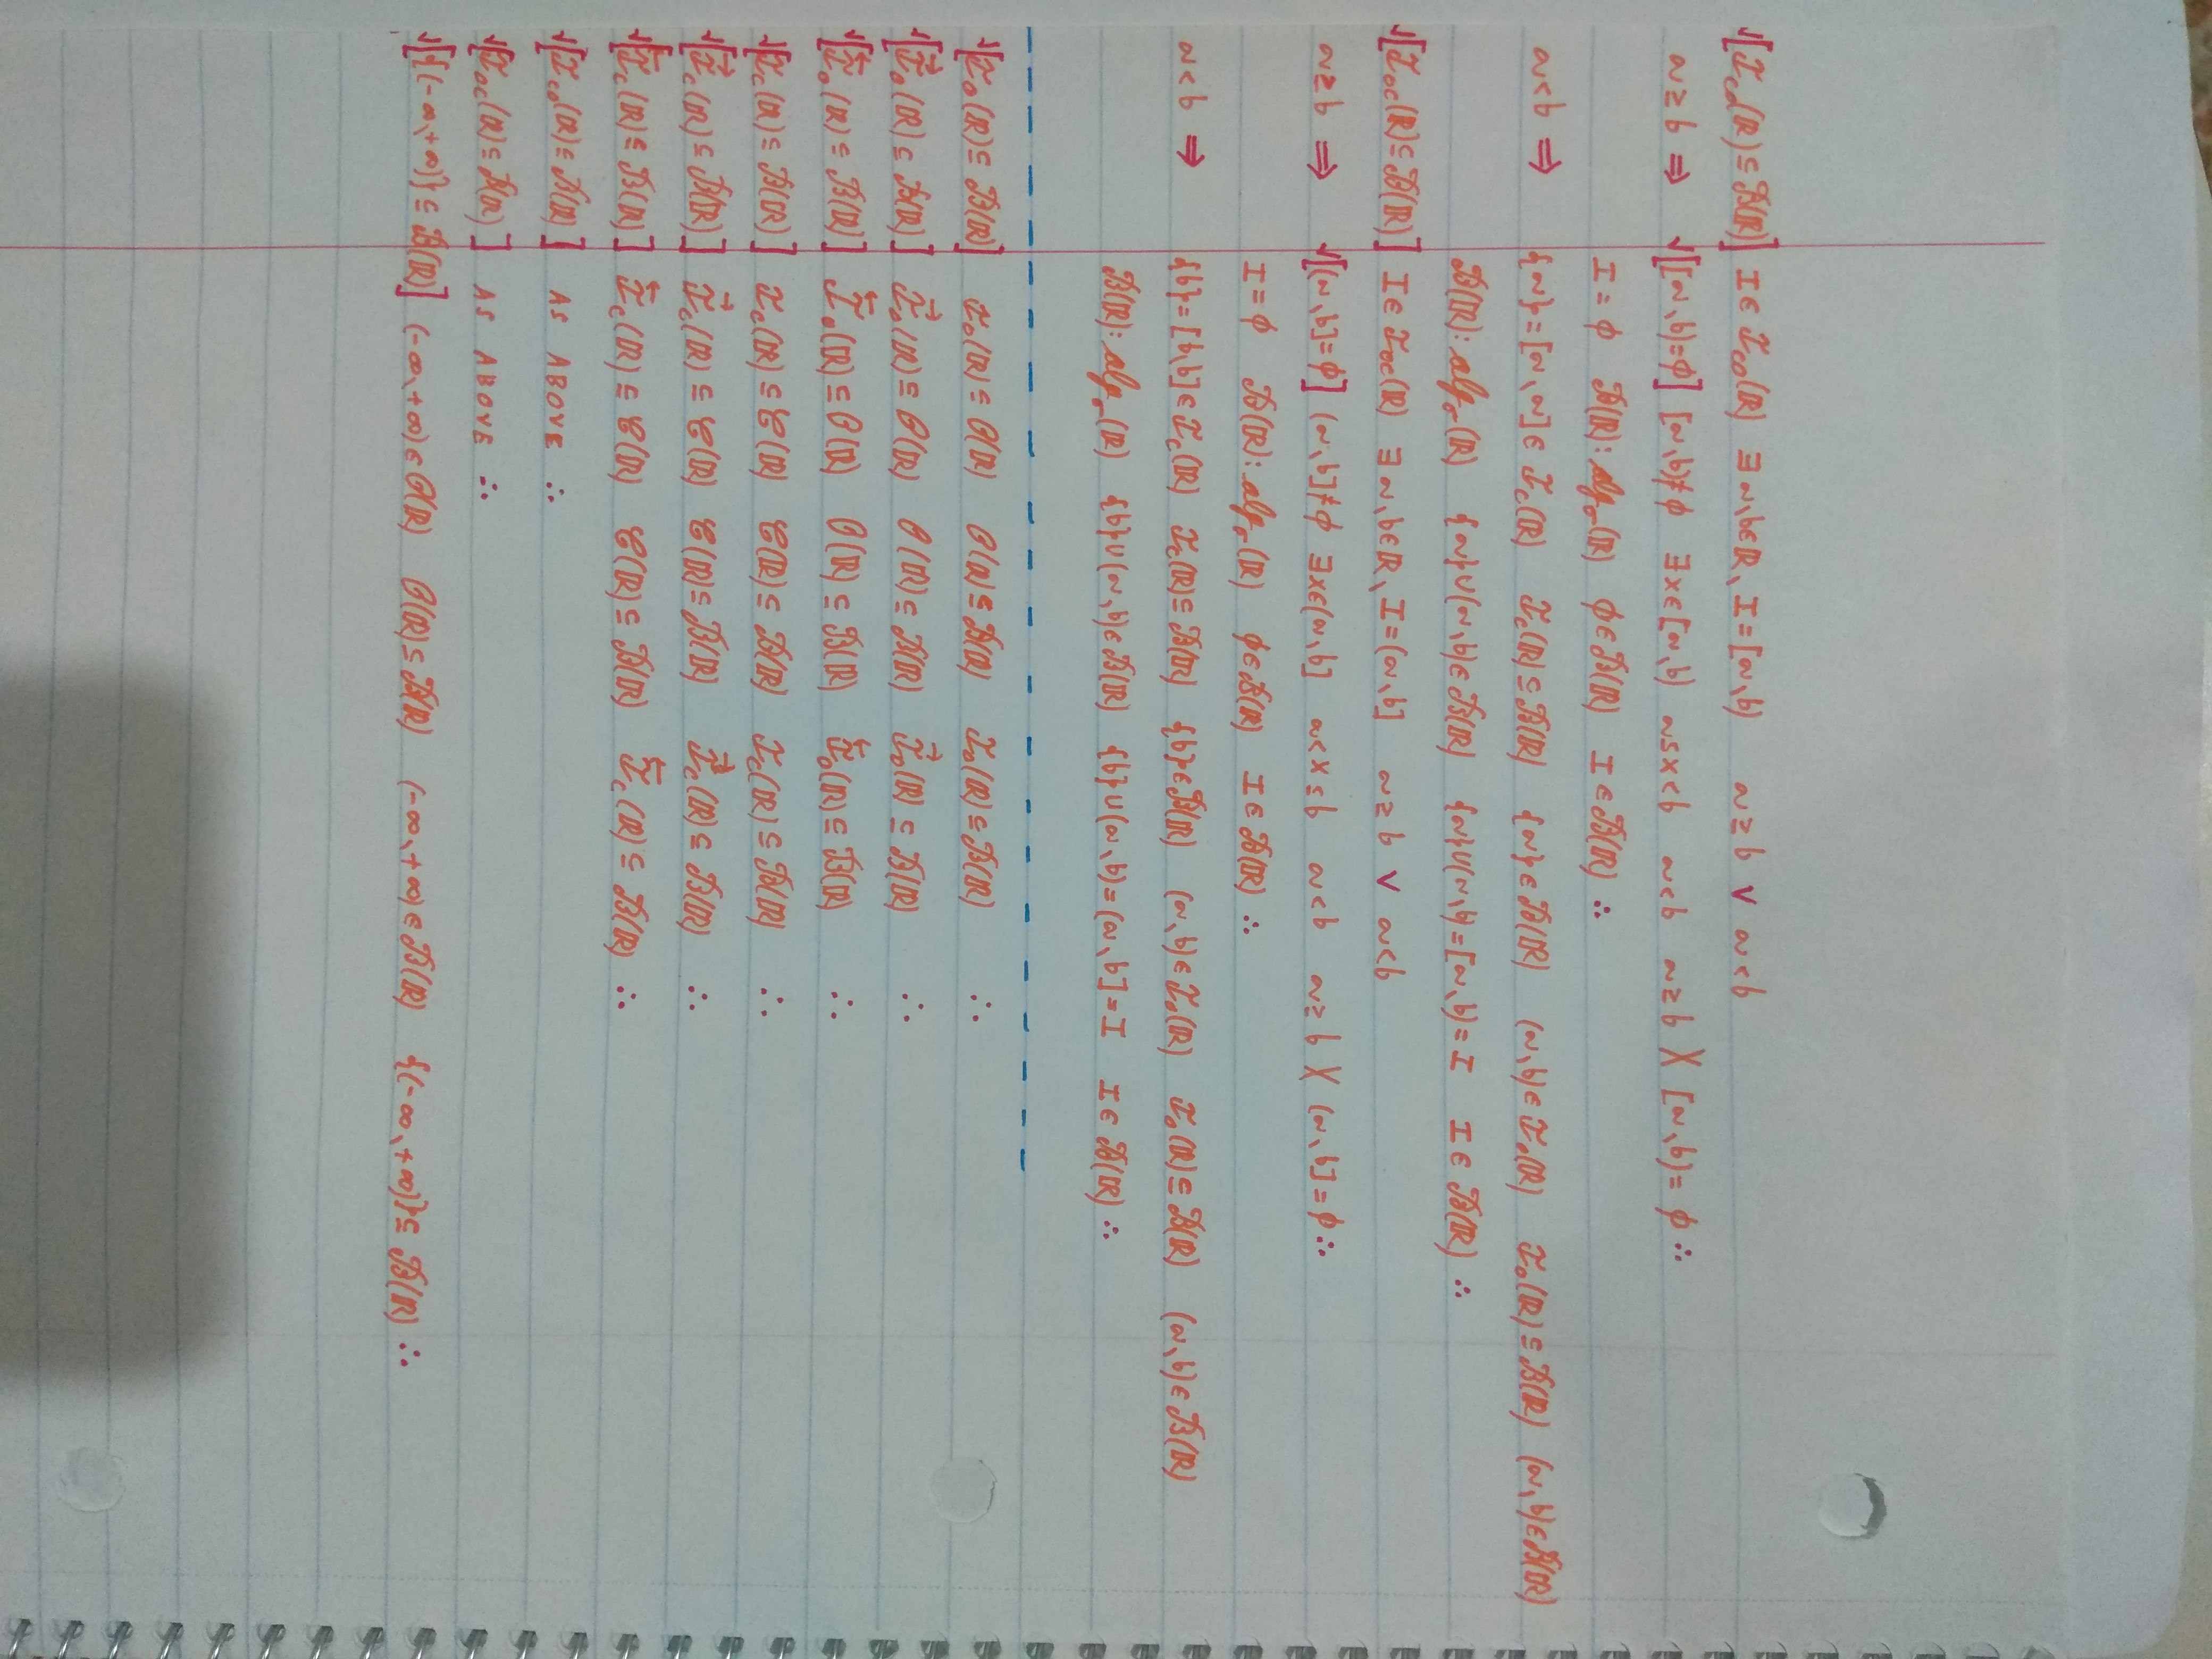 √[ℐco(ℝ)⊆ℬ(ℝ)] I∈ℐco(ℝ) ∃a,b∈ℝ, I=[a,b) a≥b ∨ a<b
a≥b ⇒ √[[a,b)=ϕ] [a,b)≠ϕ ∃x∈[a,b) a≤x<b a<b a≥b X [a,b)=ϕ ∴
I=ϕ ℬ(ℝ):algσ(ℝ) ϕ∈ℬ(ℝ) I∈ℬ(ℝ) ∴
a<b ⇒ {a}=[a,a]∈ℐc(ℝ) ℐc(ℝ)⊆ℬ(ℝ) {a}∈ℬ(ℝ) (a,b)∈ℐo(ℝ) ℐo(ℝ)⊆ℬ(ℝ) (a,b)∈ℬ(ℝ)
ℬ(ℝ):algσ(ℝ) {a}∪(a,b)∈ℬ(ℝ) {a}∪(a,b)=[a,b)=I I∈ℬ(ℝ) ∴
√[ℐoc(ℝ)⊆ℬ(ℝ)] I∈ℐoc(ℝ) ∃a,b∈ℝ, I=(a,b] a≥b ∨ a<b
a≥b ⇒ √[(a,b]=ϕ] (a,b]≠ϕ ∃x∈(a,b] a<x≤b a<b a≥b X (a,b]=ϕ ∴
I=ϕ ℬ(ℝ):algσ(ℝ) ϕ∈ℬ(ℝ) I∈ℬ(ℝ) ∴
a<b ⇒ {b}=[b,b]∈ℐc(ℝ) ℐc(ℝ)⊆ℬ(ℝ) {b}∈ℬ(ℝ) (a,b)∈ℐo(ℝ) ℐo(ℝ)⊆ℬ(ℝ) (a,b)∈ℬ(ℝ)
ℬ(ℝ):algσ(ℝ) {b}∪(a,b)∈ℬ(ℝ) {b}∪(a,b)=(a,b]=I I∈ℬ(ℝ) ∴
√[ℐo(ℝ)⊆ℬ(ℝ)] ℐo(ℝ)⊆𝒪(ℝ) 𝒪(ℝ)⊆ℬ(ℝ) ℐo(ℝ)⊆ℬ(ℝ) ∴
√[ℐ⃗o(ℝ)⊆ℬ(ℝ)] ℐ⃗o(ℝ)⊆𝒪(ℝ) 𝒪(ℝ)⊆ℬ(ℝ) ℐ⃗o(ℝ)⊆ℬ(ℝ) ∴
√[ℐ⃖o(ℝ)⊆ℬ(ℝ)] ℐ⃖o(ℝ)⊆𝒪(ℝ) 𝒪(ℝ)⊆ℬ(ℝ) ℐ⃖o(ℝ)⊆ℬ(ℝ) ∴
√[ℐc(ℝ)⊆ℬ(ℝ)] ℐc(ℝ)⊆𝒞(ℝ) 𝒞(ℝ)⊆ℬ(ℝ) ℐc(ℝ)⊆ℬ(ℝ) ∴
√[ℐ⃗c(ℝ)⊆ℬ(ℝ)] ℐ⃗c(ℝ)⊆𝒞(ℝ) 𝒞(ℝ)⊆ℬ(ℝ) ℐ⃗c(ℝ)⊆ℬ(ℝ) ∴
√[ℐ⃖c(ℝ)⊆ℬ(ℝ)] ℐ⃖c(ℝ)⊆𝒞(ℝ) 𝒞(ℝ)⊆ℬ(ℝ) ℐ⃖c(ℝ)⊆ℬ(ℝ) ∴
√[ℐco(ℝ)⊆ℬ(ℝ)] AS ABOVE ∴
√[ℐoc(ℝ)⊆ℬ(ℝ)] AS ABOVE ∴
√[{(-∞,+∞)}⊆ℬ(ℝ)] (-∞,+∞)∈𝒪(ℝ) 𝒪(ℝ)⊆ℬ(ℝ) (-∞,+∞)∈ℬ(ℝ) {(-∞,+∞)}⊆ℬ(ℝ) ∴